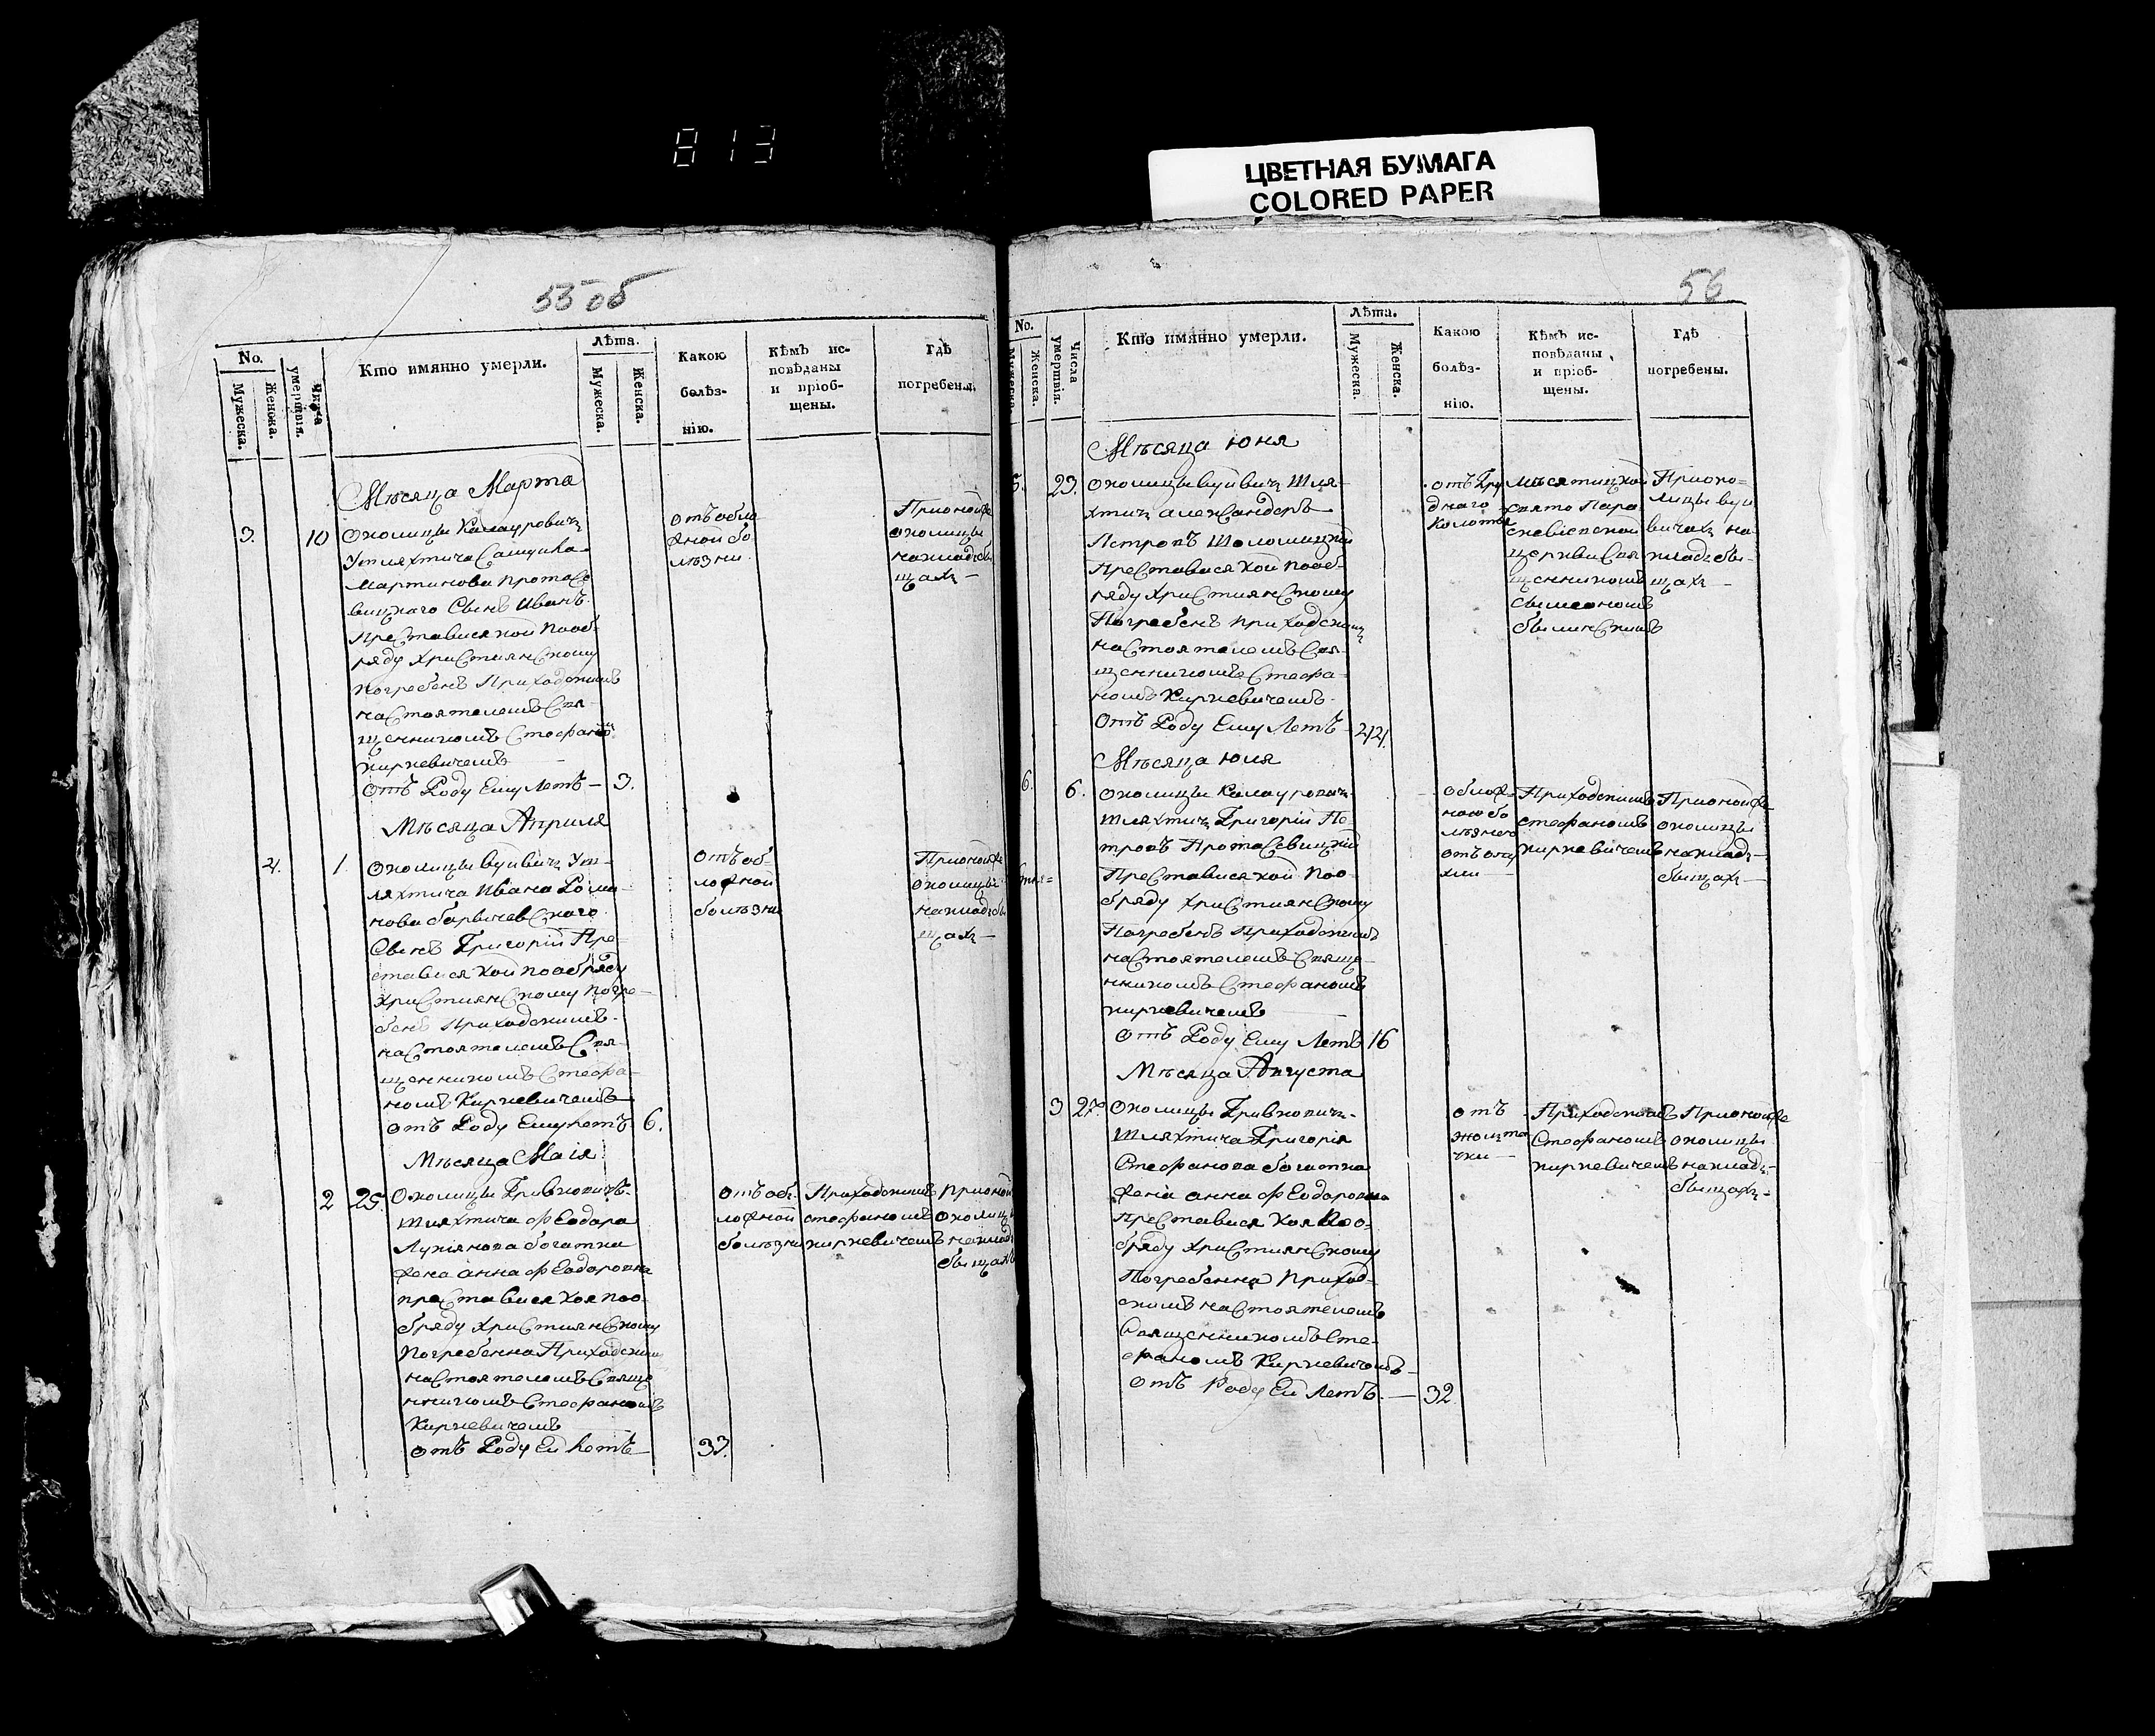 813
ЦВЕТНАЯ БУМАГА
COLORED PAPER
55 об
No.
Мужеска.
Женска.
Числа умертвія.
Кто имянно умерли.
Лѣта.
Мужеска.
Женска.
Какою
болѣз-
нію.
Кѣмъ ис-
повѣданы
и пріоб-
щены.
Гдѣ
погребены.
Мѣсяца Марта
3. 10
Околицы Калауровичъ
Ушляхтича
Мартинова Протасе
вицкаго Сынъ Иванъ
Преставися кой пооб-
ряду християнскому
погребенъ Приходскимъ
настоятелемъ Свя-
щенникомъ Стефаномъ
киркевичемъ
отъ Роду Ему Летъ — 3.
отъ обло
жной бо
лѣзни
При оной же
околицы
на кладби
щахъ —
Мѣсяца Априля
4. 1.
Околицы вуйвичъ Уш-
ляхтича Ивана Рома-
нова
Сынъ Григорій Пре-
ставися кой по обряду
християнскому погре-
бенъ Приходскимъ
настоятелемъ Свя-
щенникомъ Стефа-
номъ Киркевичемъ
отъ Роду Ему Летъ 6.
отъ об-
ложной
болѣзни
При оной же
околицы
на кладби
щахъ —
Мѣсяца Маія
2 25.
Околицы Гривковичъ
шляхтича Феодора
Лукіянова богатка
жена анна Феодоровна
преставися коя поо-
бряду християнскому
Погребенна Приходскимъ
настоятелемъ Свяще
нникомъ Стефаномъ
Киркевичемъ
отъ Роду Ей Летъ 33.
отъ об-
ложной
болѣзни
Приходскимъ
стефаномъ
киркевичемъ
при оной
околицы
на клад
бищахъ
56
No.
Мужеска.
Женска.
Числа умертвія.
Кто имянно умерли.
Лѣта.
Мужеска.
Женска.
Какою
болѣз-
нію.
Кѣмъ ис-
повѣданы
и пріоб-
щены.
Гдѣ
погребены.
Мѣсяца юня
5. 23.
околицы вуйвичъ Шля-
хтичъ александеръ
Петровъ Шоломицкій
Преставися кой пооб-
ряду християнскому
Погребенъ приходскимъ
настоятелемъ Свя-
щенникомъ Стефа-
номъ Киркевичемъ.
отъ Роду Ему Летъ
отъ Гру
днаго
колотья
свято Пара
скевіевской
церкви Свя
щенникомъ
Сымеономъ
При око-
лицы вуй
вичахъ на
кладби-
щахъ —
Мѣсяца юлія
6. 6.
околицы Калауровичъ
шляхтичъ Григорій Пе-
тровъ Протасевицкій
Преставися кой поо-
бряду християнскому
Погребенъ Приходскимъ
настоятелемъ Свяще-
нникомъ Стефаномъ
киркевичемъ
отъ Роду Ему Летъ 16
облож-
ною бо
Приходскимъ
стефаномъ
киркевичемъ
При оной же
околицы
на клад-
бищахъ —
Мѣсяца Августа
3
Околицы Гривковичъ
шляхтича Григорія
Стефанова богатка
жена анна Феодоровна
Преставися коя поо-
бряду християнскому
Погребенна приход-
скимъ настоятелемъ
Священникомъ Сте-
фаномъ Киркевичемъ
отъ Роду Ей Летъ. — 32
отъ
Приходскимъ
Стефаномъ
киркевичемъ
При оной же
околицы
на клад-
бищахъ —